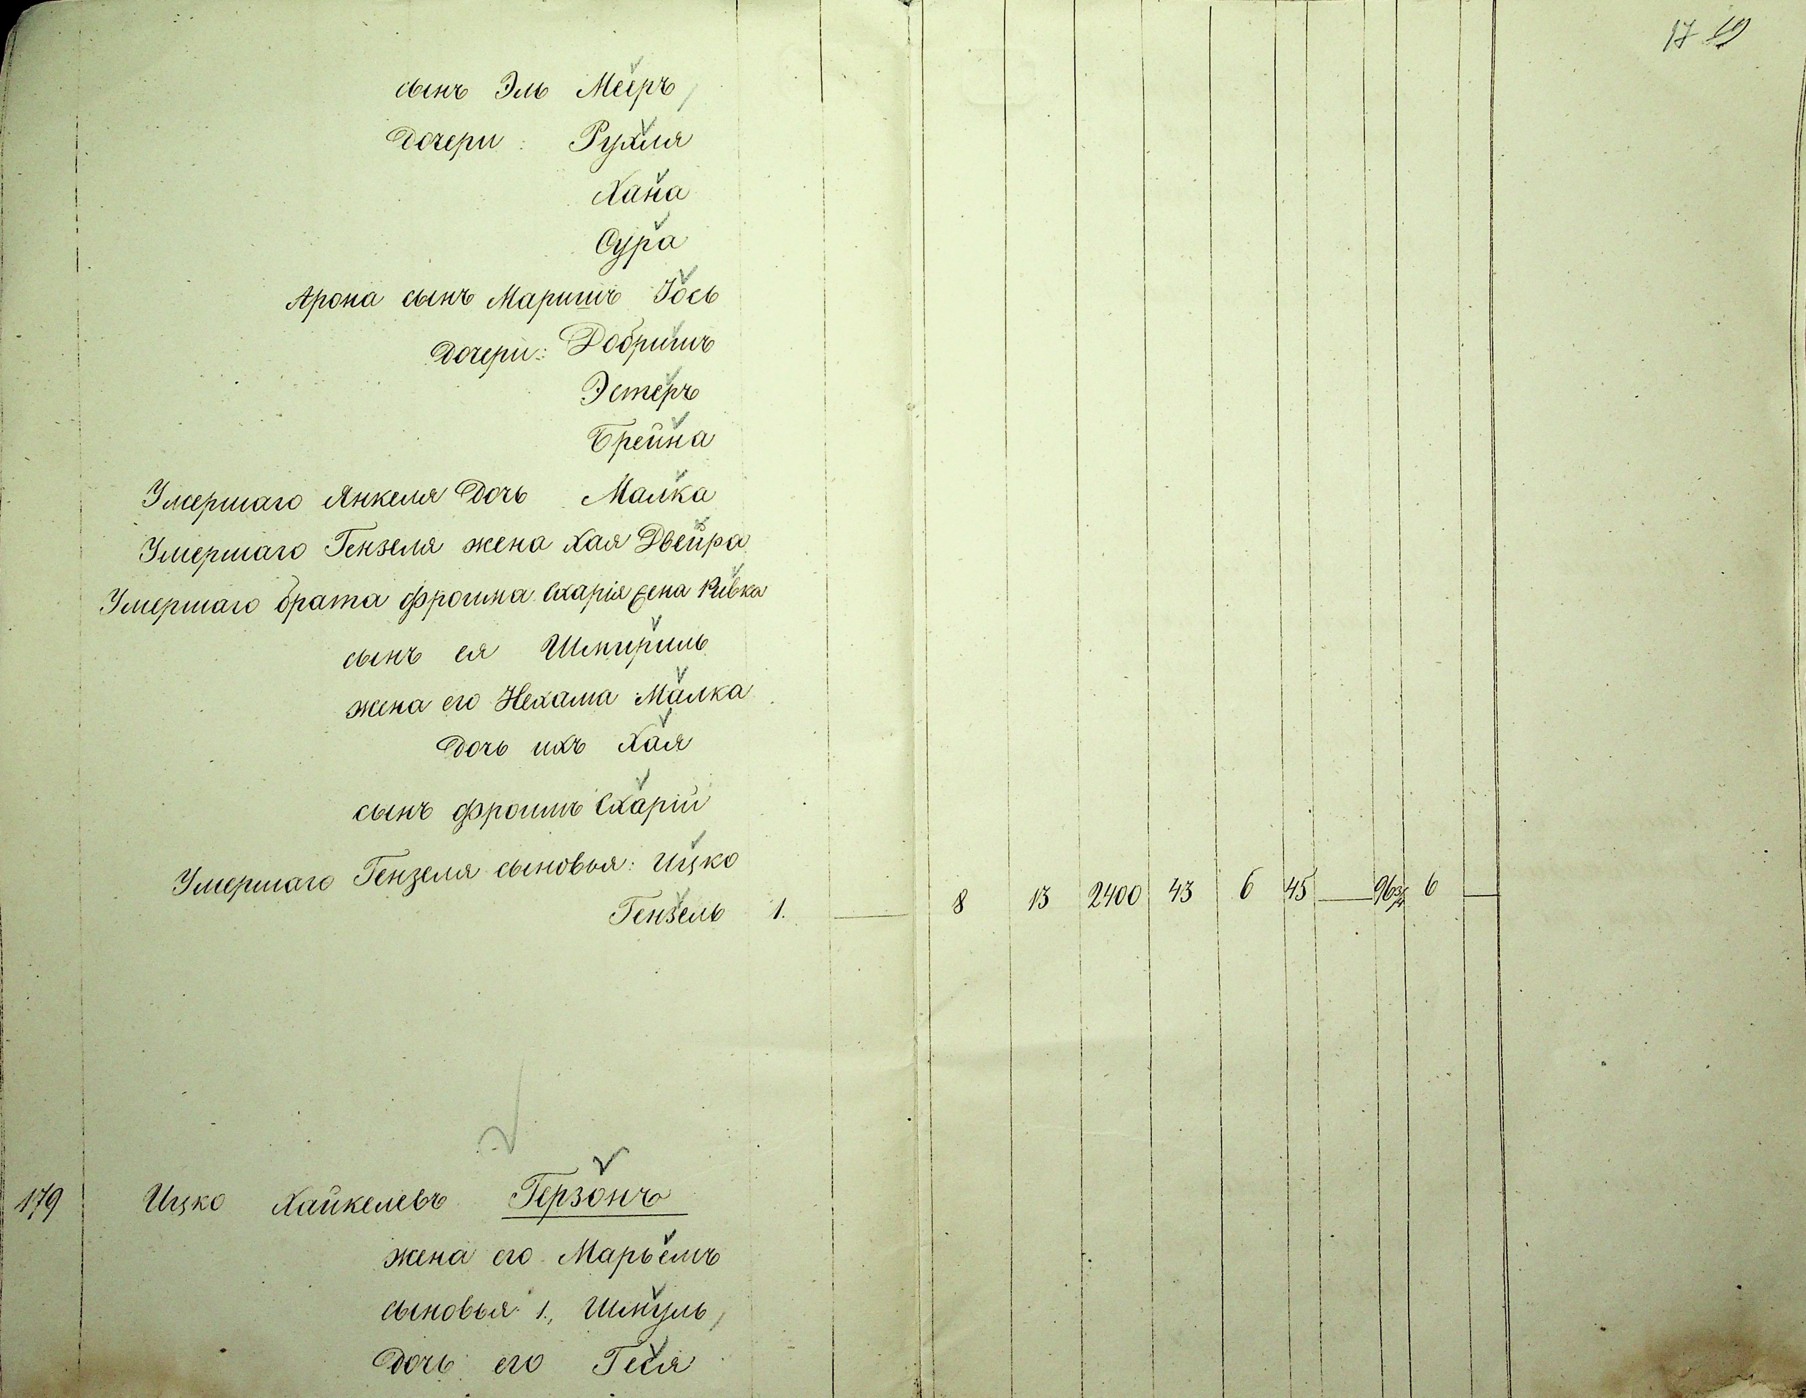 17 19
сынъ Эль Мееръ
Дочери: Рухля
Хана
Сура
Арона сынъ Маришъ Іось
Дочери: Добришъ
Эстеръ
Брейна
Умершаго Янкеля Дочь Малка
Умершаго Гензеля жена Хая Двейра
Умершаго брата Фроима Схарія жена Ривка
сынъ ея Шмириль
жена его Нехама Малка
Дочь ихъ Хая
сынъ Фроимъ Схарій
Умершаго Гензеля сыновья: Ицко
Гензель 1. — 8 13 2400 43 6 45 — 96¾ 6 —
179 Ицко Хайкелевъ Герзонъ
жена его Марьемъ
сыновья 1., Шмуль
Дочь его Геся